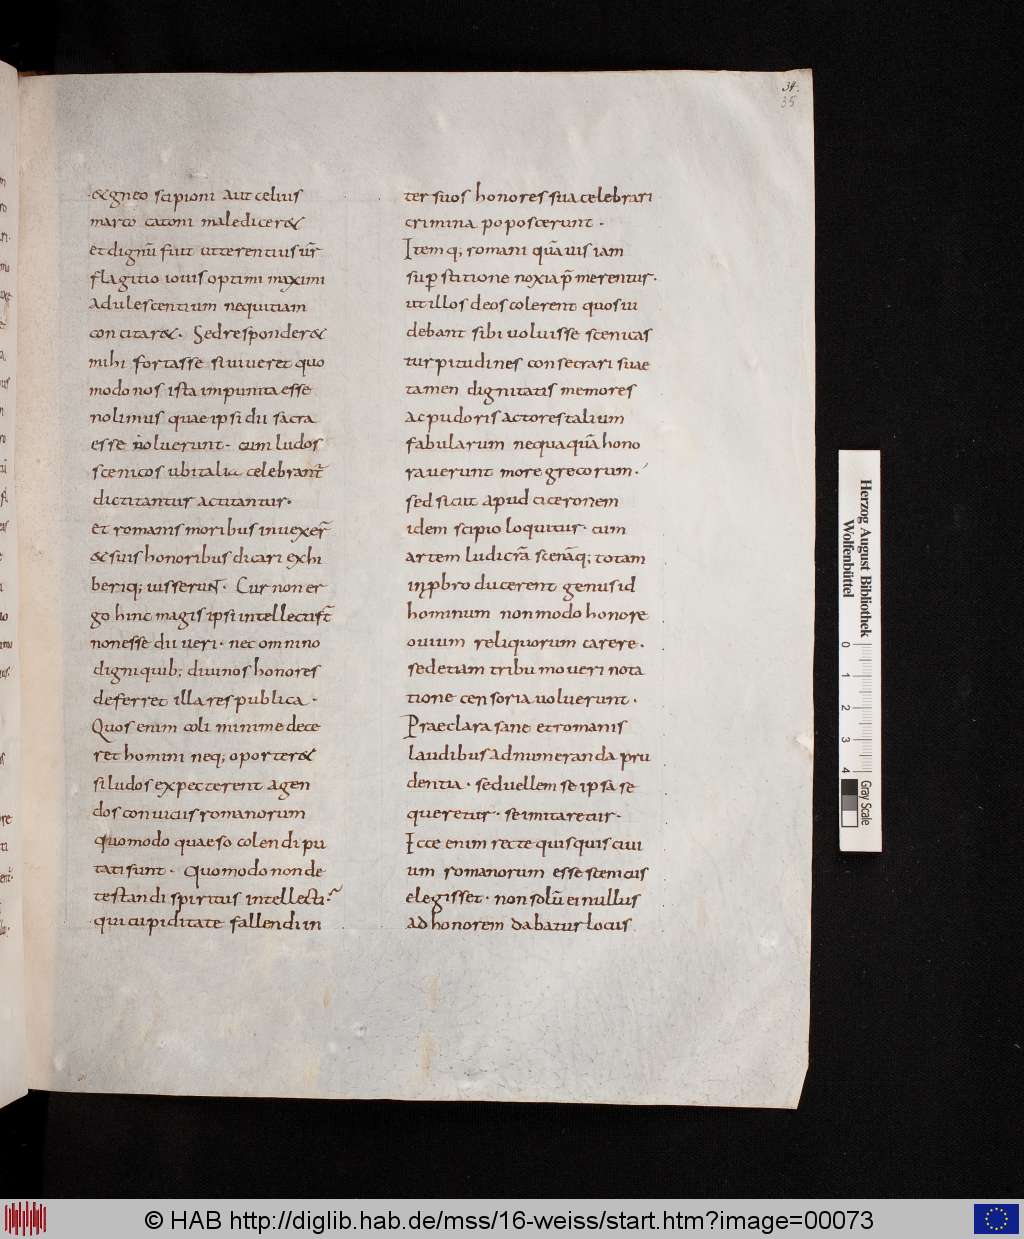 34.
35
&gneo scipioni aut celius
marco catoni maledicer&
et dignū fuit ut terentius ur̄
flagitio iouis optimi maximi
adulescentium nequitiam
concitar&. Sed responder&
mihi fortasse si uiueret quo
modo nos ista impunita esse
nolimus quae ipsi dii sacra
esse uoluerunt. cum ludos
scenicos ubi talia celebrant̄
dictitantur actitantur.
et romanis moribus inuexer̄
& suis honoribus dicari exhi
beriq; iusserunt. Cur non er
go hinc magis ipsi intellectist̄
non esse dii ueri. nec omnino
digni quib; diuinos honores
deferret illa res publica.
Quos enim coli minime dece
ret homini neq; oporter&
si ludos expecterent agen
dos conuiciis romanorum
quomodo quaeso colendi pu
tati sunt. Quomodo non de
testandi spiritus intellecti.
qui cupiditate fallendi in
ter suos honores sua celebrari
crimina poposcerunt.
Itemq; romani quāuis iam
sup̄stitione noxia p̄merentur.
ut illos deos colerent quos ui
debant sibi uoluisse scenicas
turpitudines consecrari suae
tamen dignitatis memores
ac pudoris actores talium
fabularum nequaquā hono
rauerunt more grecorum.
sed sicut apud ciceronem
idem scipio loquitur. cum
artem ludicrā scenāq; totam
in pbro ducerent genus id
hominum non modo honore
ciuium reliquorum carere.
sed etiam tribu moueri nota
tione censoria uoluerunt.
Praeclara sane et romanis
laudibus adnumeranda pru
dentia. sed uellem se ipsa se
queretur. se imitaretur.
Ecce enim recte quisquis ciui
um romanorum esse scenicus
elegisset. non solū ei nullus
ad honorem dabatur locus
Herzog August Bibliothek
Wolfenbüttel
0 1 2 3 4
Gray Scale
© HAB http://diglib.hab.de/mss/16-weiss/start.htm?image=00073